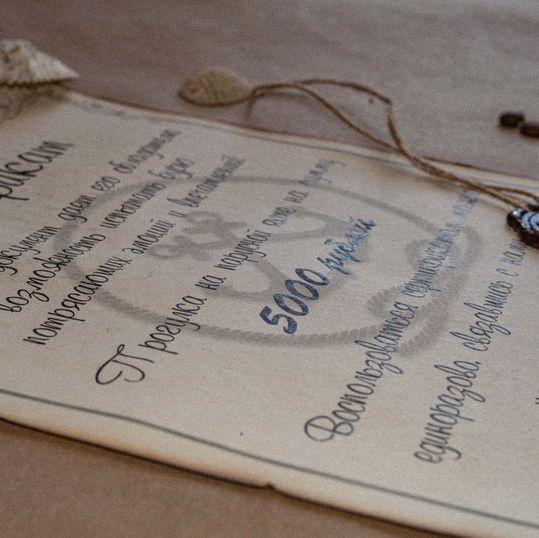 фикат
документ дает его обладателю
возможность испытать бурю
потрясающих эмоций и впечатлений
Прогулка на парусной яхте на сумму
5000 рублей
Воспользоваться сертификатом
единоразово, связавшись с